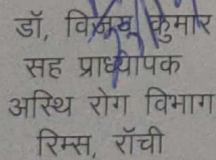 डॉ, कुमार
सह प्राध्यापक
अस्थि रोग विभाग
रिम्स, राँची